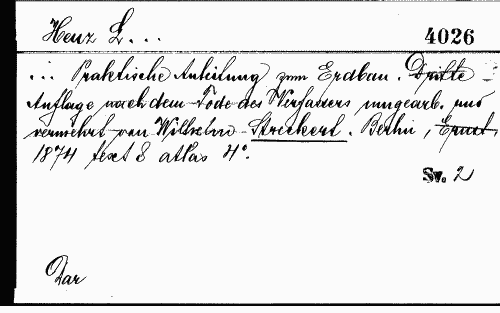 Henz L...
4026
... Praktische Anleitung zum Erdbau. Dritte
Auflage nach dem Tode des Verfassers umgearb. und
vermehrt von Wilhelm Streckert. Berlin, Ernst,
1874 text 8 atlas 4°.
Sv. 2
Dar